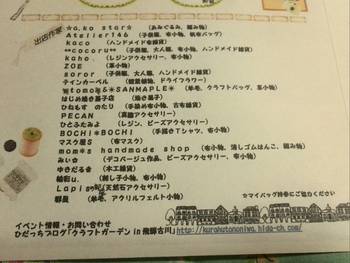 出店作家
☆a.ko star☆(あみぐるみ、編み物)
Atelier146(子供服、布小物、帆布バッグ)
kaco(ハンドメイド布雑貨)
**cocoru**(子供服、大人服、布小物)
kaho.(レジンアクセサリー、布小物)
ZOE(革小物)
soror(子供服、大人服、ハンドメイド雑貨)
テインカーベル(観葉植物、ドライフラワー)
tomo&*SANMAPLE*(羊毛、クラフトバンド、布小物)
はじめ焼き菓子店(焼き菓子)
ひねもす のたり(手染め布小物、古布雑貨)
PECAN(真鍮アクセサリー)
ひとふたみよ(レジン、ビーズアクセサリー)
BOCHi*BOCHI(手描きTシャツ、布小物)
マスク屋S(布マスク)
mom*s handmade shop(布小物、消しゴムはんこ、編み物)
みい☆(デコパージュ作品、ビーズアクセサリー、布小物)
ゆきだるま(木工雑貨)
結彩u.(刺し子小物、布小物)
Lapis(天然石アクセサリー)
(羊毛、アクリルフェルト小物)
☆マイバッグ持参にご協力ください
イベント情報・お問い合わせ
ひだっちブログ「クラフトガーデン in 飛騨古川」http://kurahutononiwa.hida-ch.com/